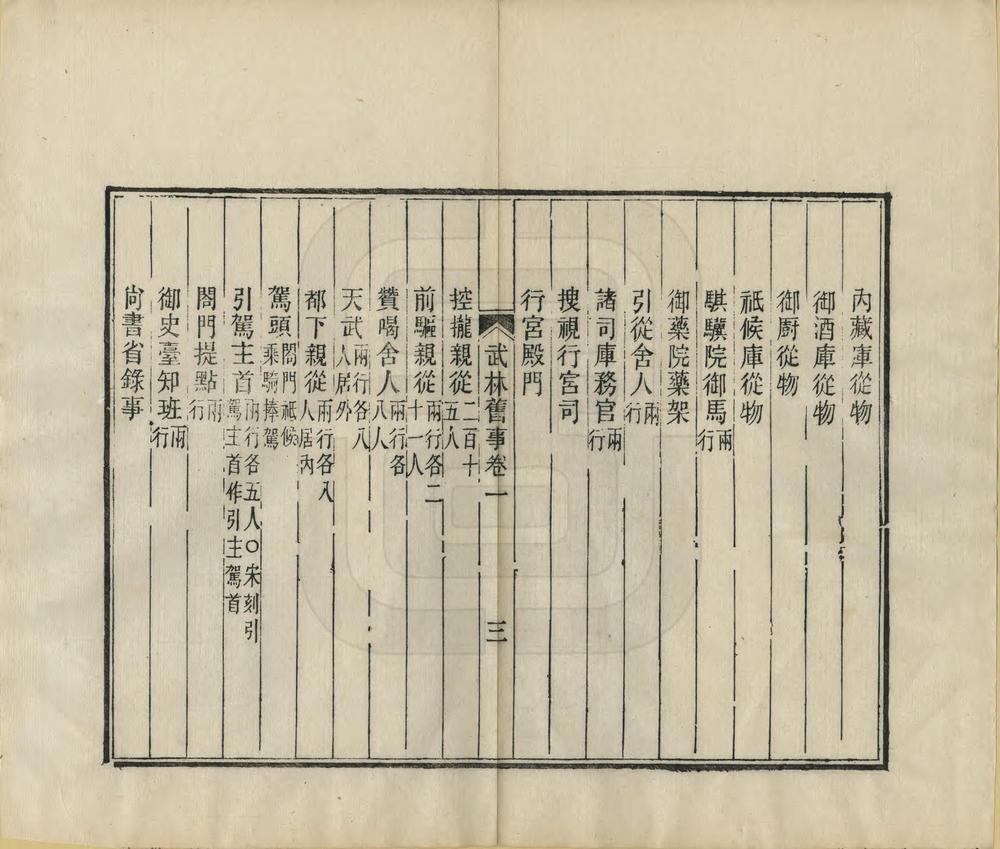 內藏庫從物
御酒庫從物
御厨從物
祗候庫從物
騏驥院御馬兩行
御藥院藥架
引從舍人兩行
諸司庫務官兩行
搜視行宮司
行宮殿門
武林舊事卷一 三
控攏親從二百十五人
前驅親從兩行各二十一人
贊喝舍人兩行各八人
天武兩行各八人居外
都下親從兩行各八人居內
駕頭閤門祗候乘騎捧駕
引駕主首兩行各五人○宋刻引駕主首作引主駕首
閤門提點兩行
御史臺知班兩行
尙書省錄事